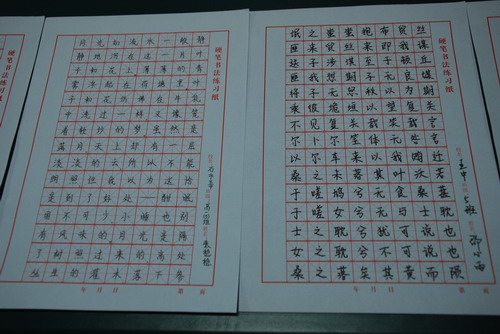 硬笔书法练习纸
月光如流水一般静
静地泻在这一片叶
子和花上薄薄的青
雾浮起在荷塘里叶
子和花仿佛在牛乳
中洗过一样又像笼
着轻纱的梦虽然是
满月天上却有一层
淡淡的云所以不能
朗照但我以为这恰
是到了好处
小睡也别
有风味的月光是隔
了树照过来的高处
丛生的灌木落下参
年 月 日 第 页
硬笔书法练习纸
氓之蚩蚩抱布贸丝
匪来贸丝来即我谋
送子涉淇至于顿丘
匪我愆期子无良媒
将子无怒秋以为期
乘彼垝垣以望复关
不见复关
尔卜尔筮体无咎言
以尔车来以我贿迁
桑之未落其叶沃若
于嗟鸠兮无食桑葚
于嗟女兮无与士耽
士之耽兮犹可说也
女之耽兮不可说也
桑之落矣其黄而陨
年 月 日 第 页